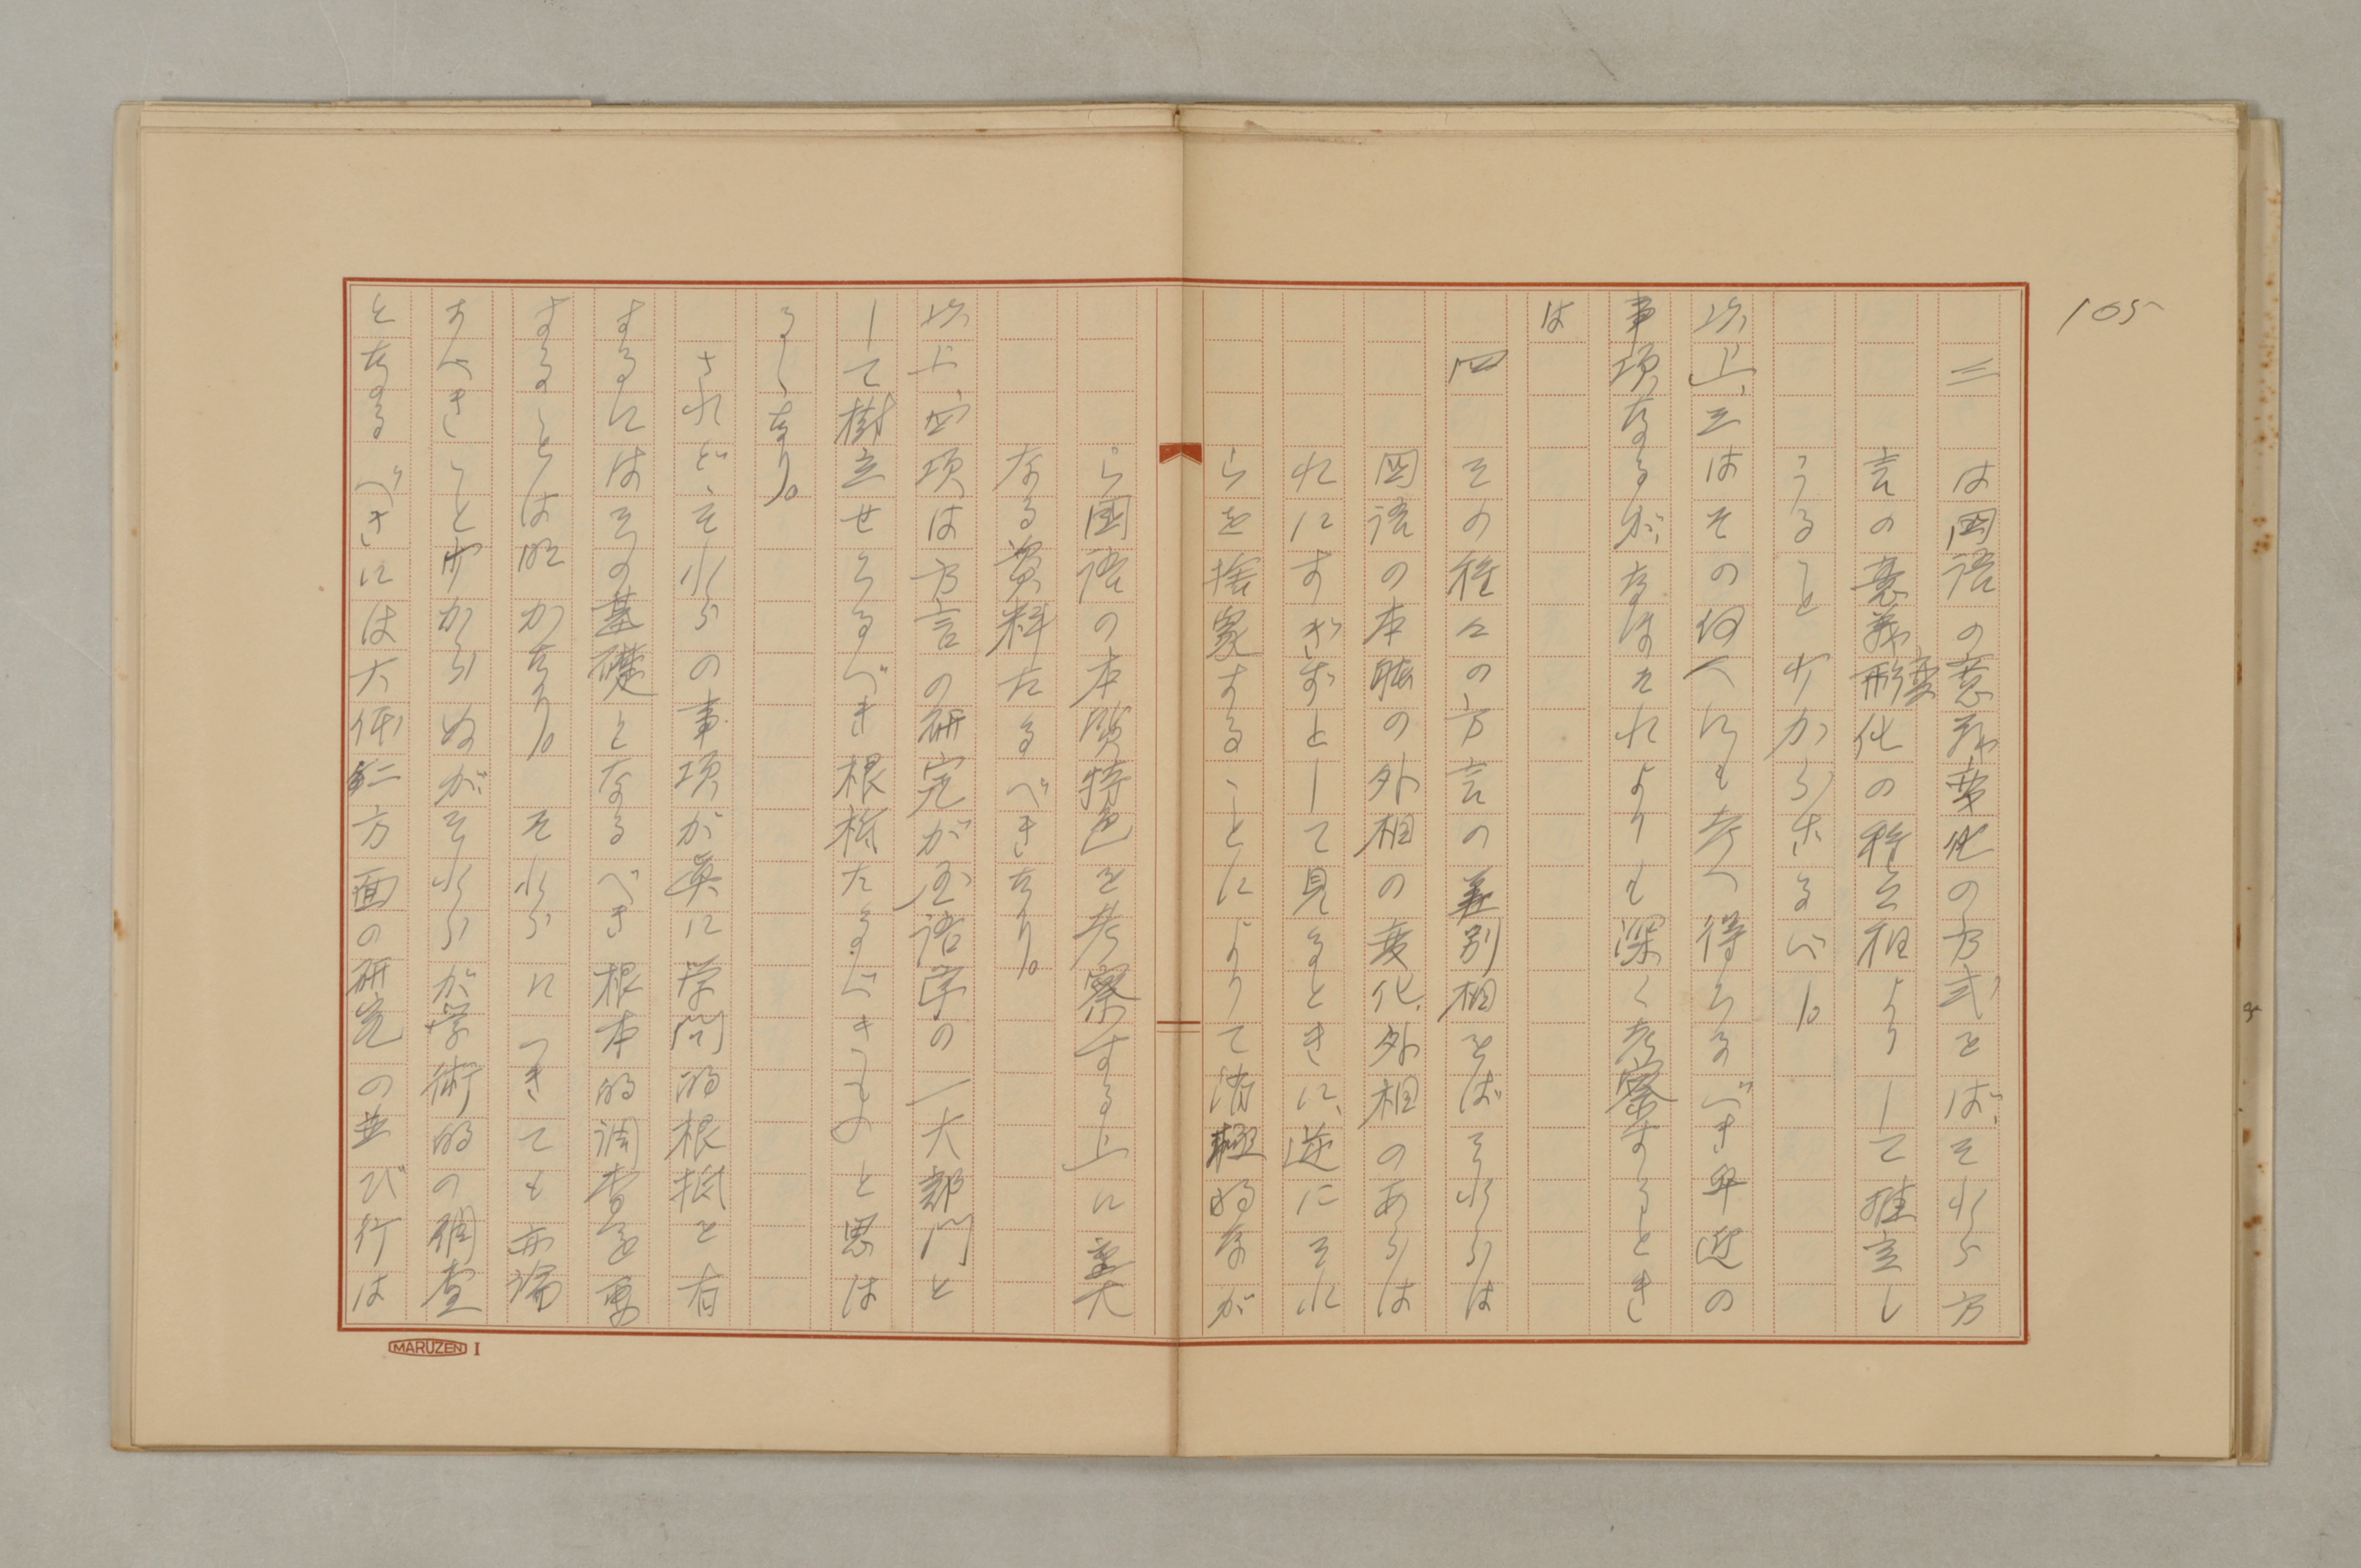 105
三 は国語の意義変化の方式をば、それら方
言の意義変化の種々相よりして推定し
うること少からざるべし。
以上、三はその何人にも考へ得らるべき卑近の
事項なるが、なほそれよりも深く考察するとき
は
四 その種々の方言の差別相をばそれらは
国語の本体の外相の変化、外相のあらは
れにすぎずとして見るときに、逆にそれ
らを捨象することによりて消極的なが
ら国語の本質特色を考察する上に重大
なる資料たるべきなり。
以上、四項は方言の研究が国語学の一大部門と
して樹立せらるべき根柢たるべきものと思は
るゝなり。
されど、それらの事項が真に学問的根柢を有
するにはその基礎となるべき根本的調査を要
することは明かなり。それらにつきても勿論
すべきこと少からぬがそれらが学術的の調査
となるべきには大体二方面の研究の並び行は
MARUZEN I